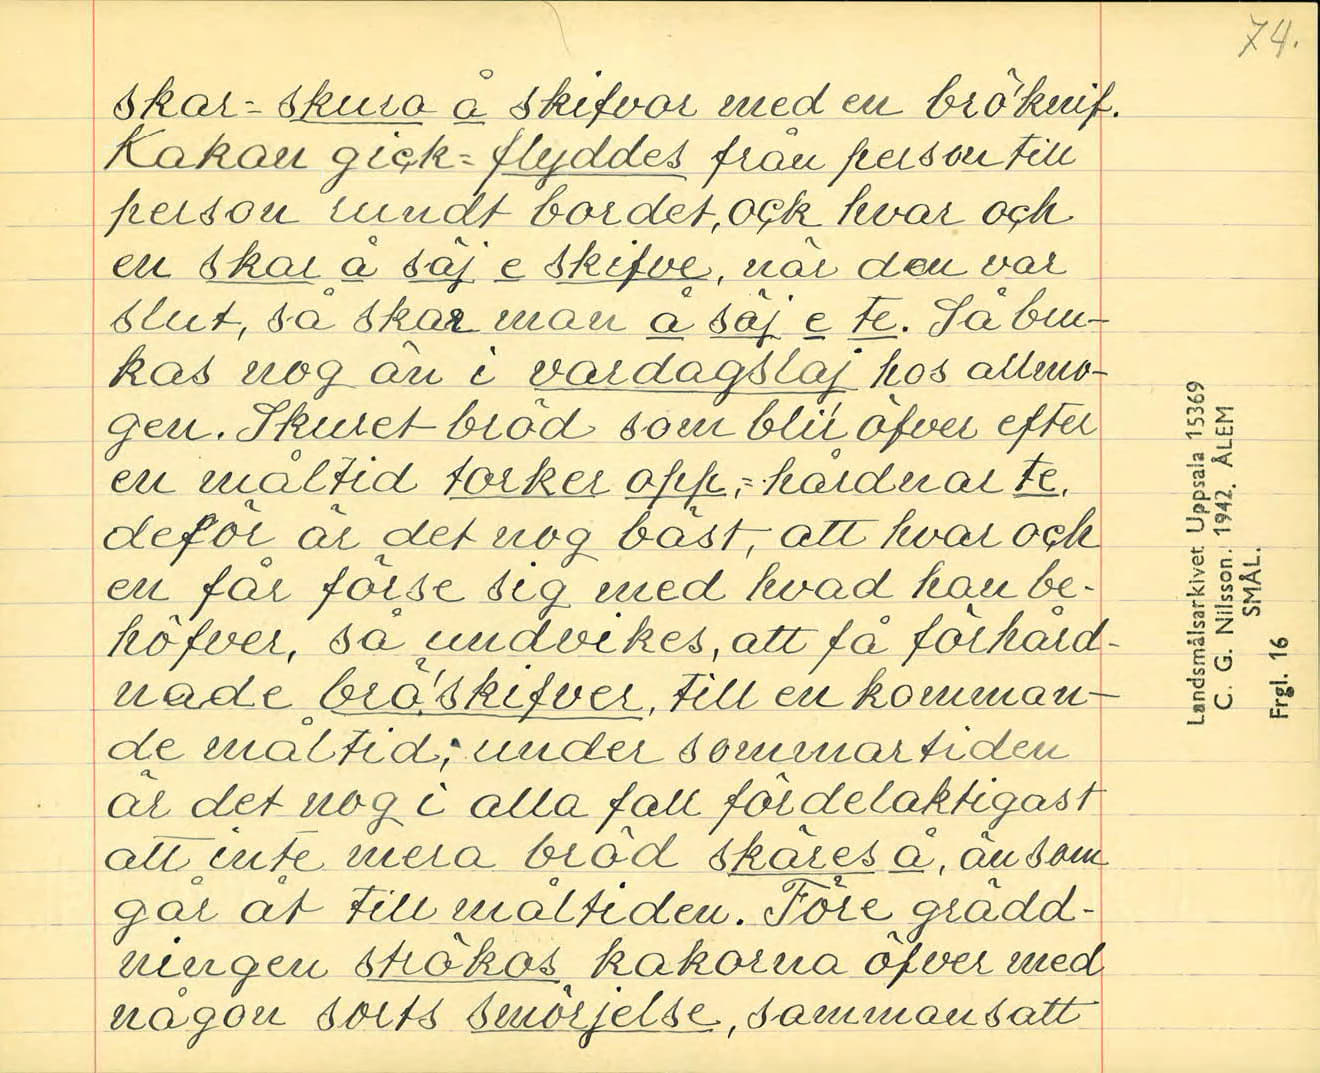 74.
skar = skura å skifvor med en brö'knif.
Kakan gick = flyddes från person till
person rundt bordet, ock hvar och
en skar å säj e skifve, när den var
slut, så skar man å säj e te. Så bru-
kas nog än i vardagslaj hos allmo-
gen. Skuret bröd som blir öfver efter
en måltid torker opp, = hårdnar te,
deför är det nog bäst, att hvar och
en får förse sig med hvad han be-
höfver, så undvikes, att få förhård-
nade brö'skifver, till en komman-
de måltid; under sommartiden
är det nog i alla fall fördelaktigast
att inte mera bröd skäres å, än som
går åt till måltiden. Före grädd-
ningen strökos kakorna öfver med
någon sorts smörjelse, sammansatt
Landsmålsarkivet Uppsala 15369
C. G. Nilsson. 1942. ÅLEM
SMÅL.
Frgl. 16